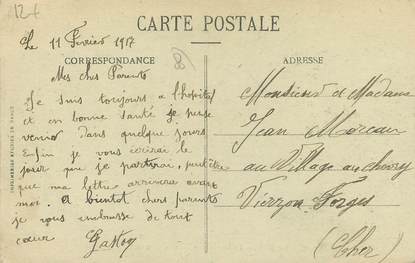 12+
CARTE POSTALE
Le 11 Février 1917
CORRESPONDANCE
ADRESSE
Mes chers Parents
Je suis toujours a l'hopital
et en bonne santé je pense
venir dans quelque jours
Enfin je vous écrirai le
jour que je partirai, peut être
que ma lettre arrivera avant
moi. a bientot chers parents
je vous embrasse de tout
cœur Gaston
Monsieur et Madame
Jean Moreau
au Village au
Vierzon Forges
(Cher)